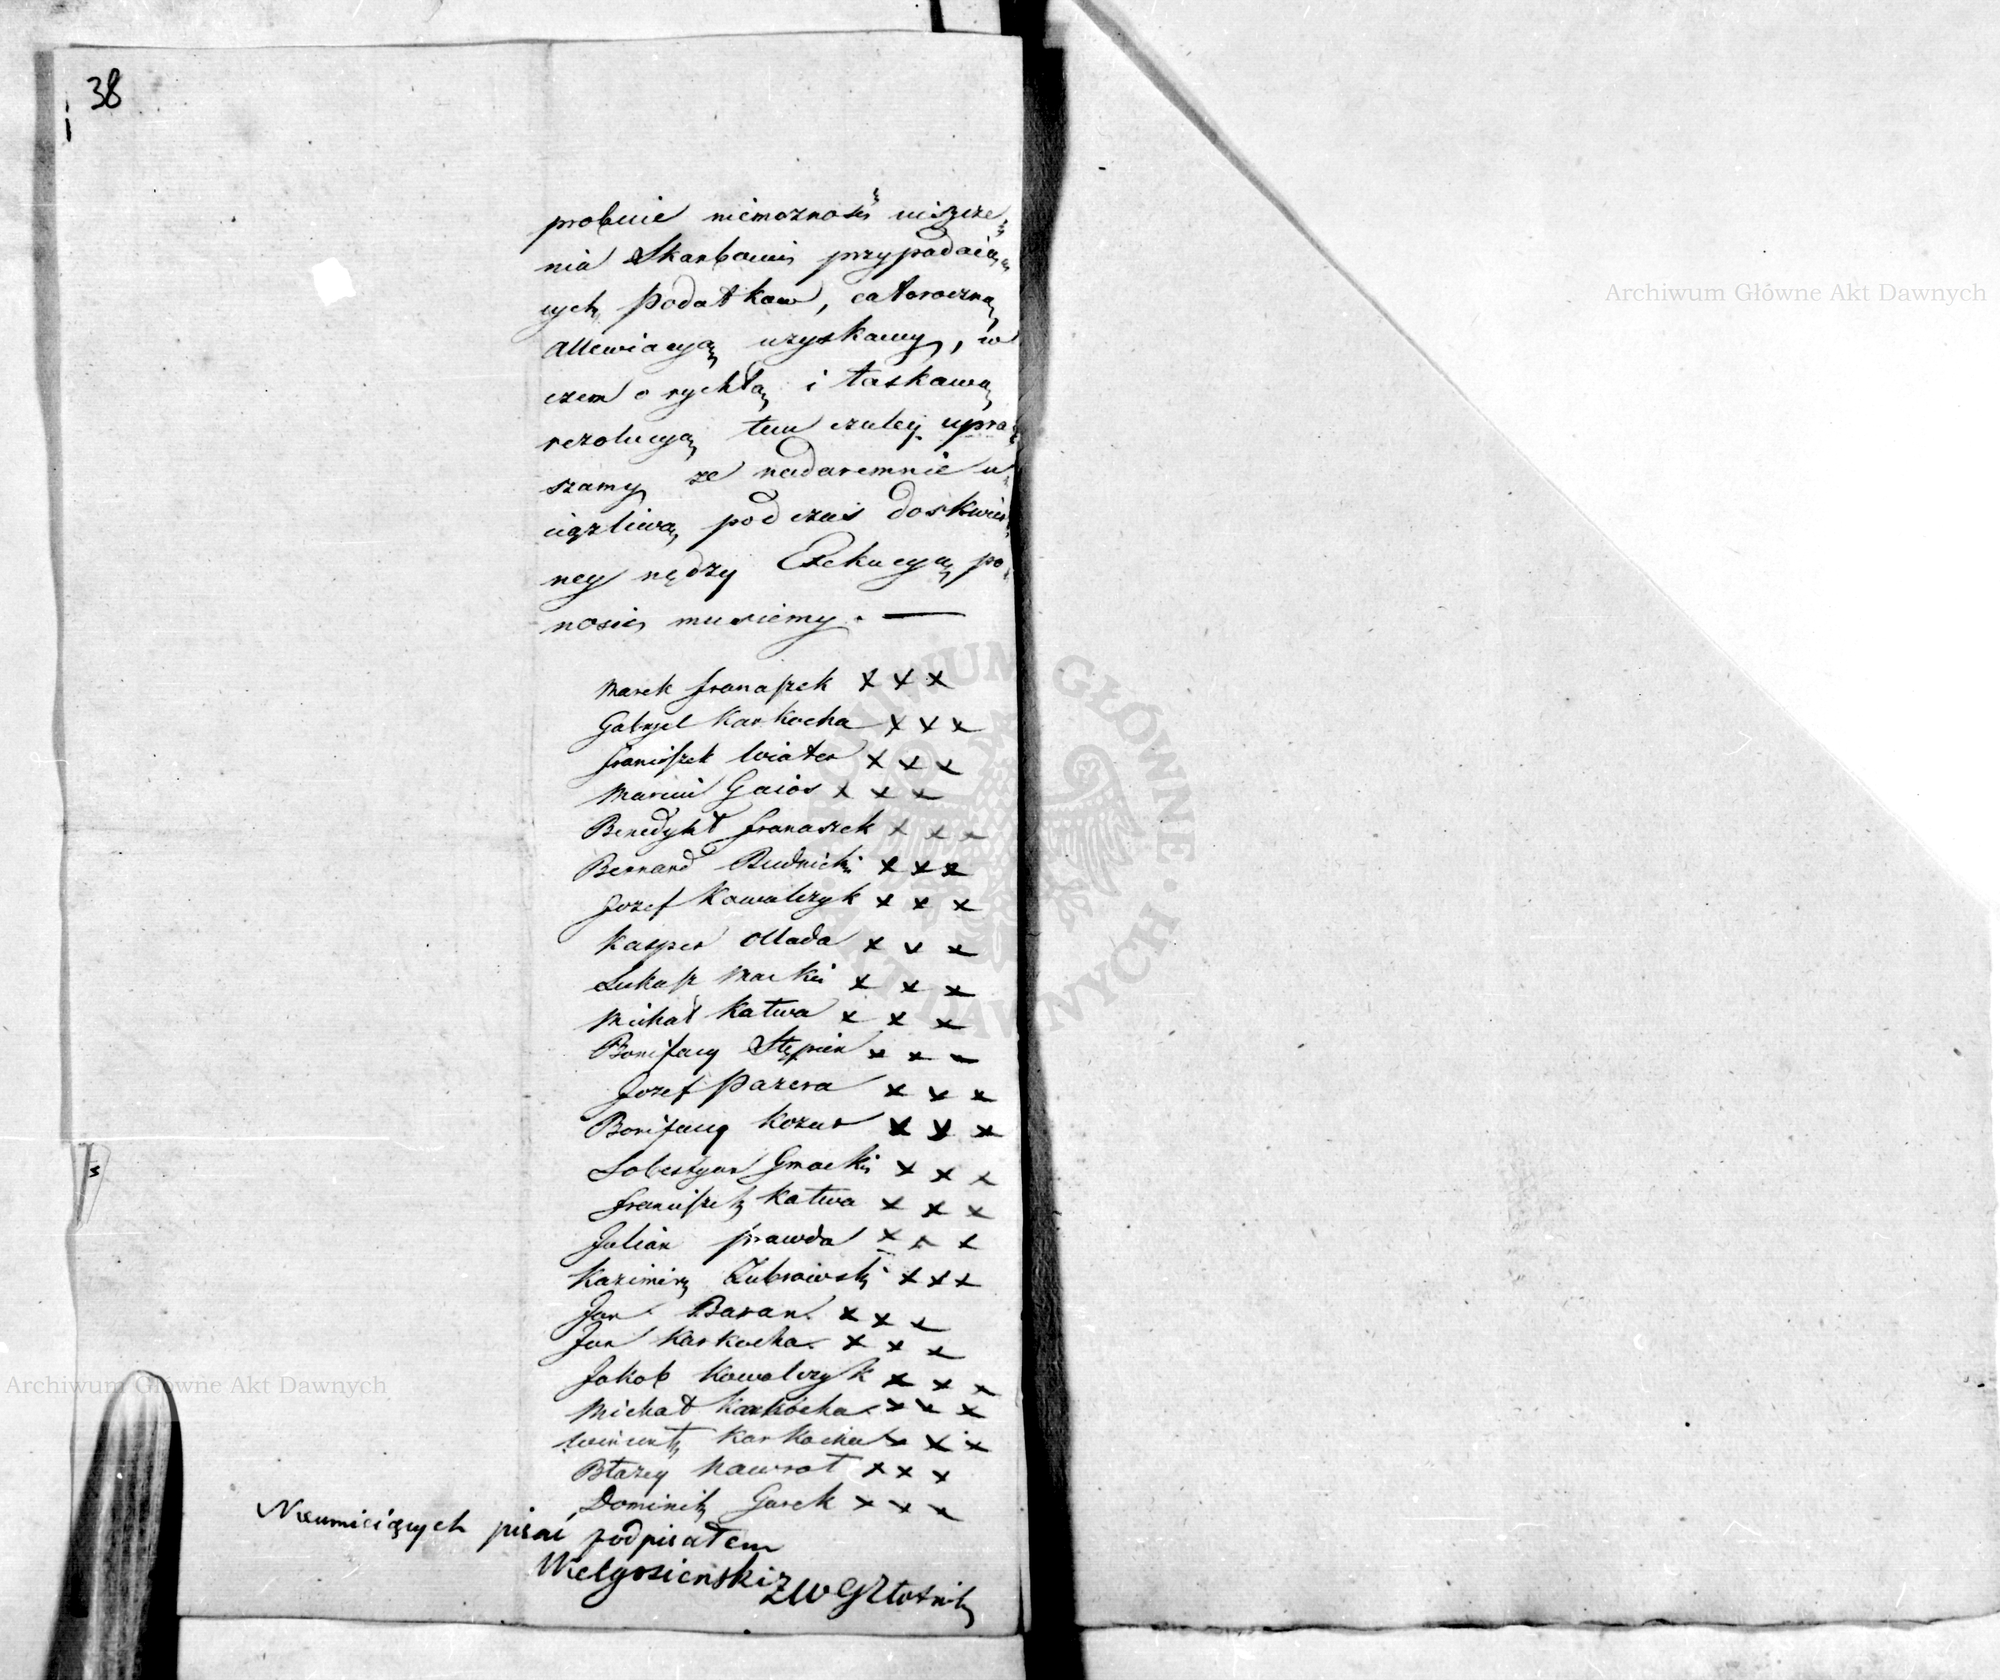 38
probuie niemożność uiszcze-
nia Skarbowi przypadaią-
cych Podatkow, całoroczną
allewiacyą uzyskamy, w
czem o rychłą i łaskawą
rezolucyą tem czuley upra-
szamy że nadaremnie u-
ciążliwą podczas doskwier-
ney nędzy Exekucyą po-
nosić musiemy. —
Marek Franaszek X X X
Gabryel Karkocha X X X
Franciszek Wiater X X X
Marcin Gaios X X X
Benedykt Franaszek X X X
Bernard Rudnicki X X X
Jozef Kowalczyk X X X
Kasper Ollada X X X
Łukasz Macki X X X
Michał Kałwa X X X
Bonifacy Stępien X X X
Jozef Pazera X X X
Bonifacy Kozur X X X
Sobestyan Gmacki X X X
Franciszek Kałwa X X X
Julian Prawda X X X
Kazimirz Zubrowski X X X
Jan Baran X X X
Jan Karkocha X X X
Jakob Kowalczyk X X X
Michał Karkocha X X X
Wincenty Karkocha X X X
Błazey Nawrot X X X
Dominik Gurek X X X
Nieumieiących pisać podpisałem
Wielgosienski ZWG Złotnik
Archiwum Główne Akt Dawnych
Archiwum Główne Akt Dawnych
ARCHIWUM GŁÓWNE AKT DAWNYCH